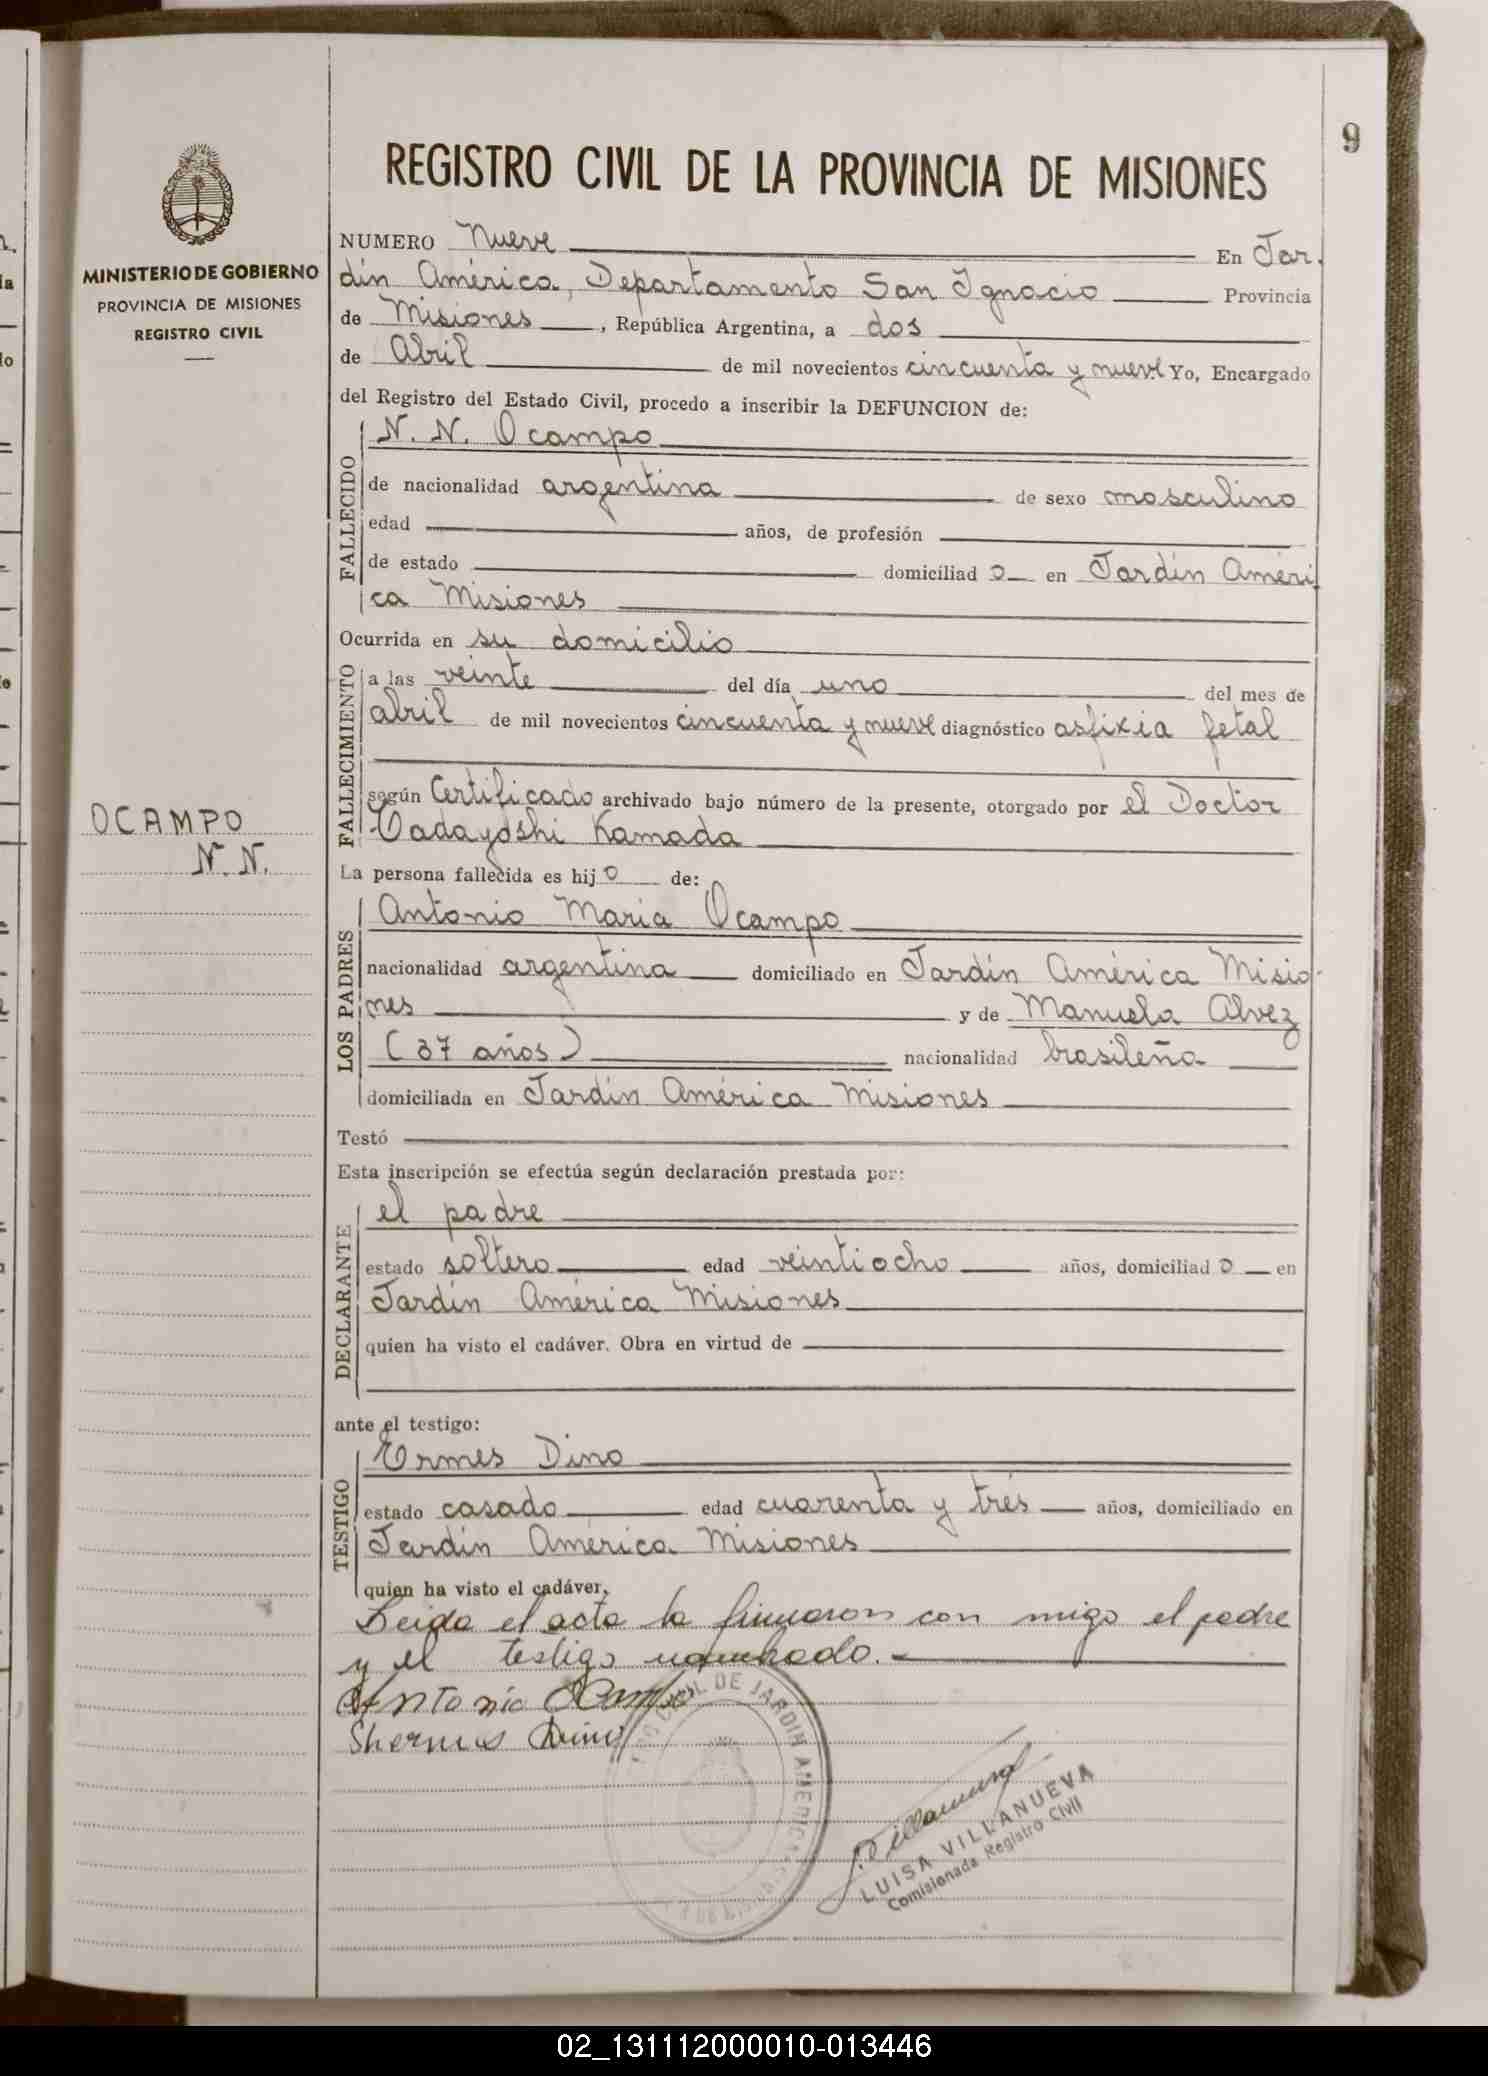 9
MINISTERIO DE GOBIERNO
PROVINCIA DE MISIONES
REGISTRO CIVIL
REGISTRO CIVIL DE LA PROVINCIA DE MISIONES
NUMERO Nueve En Jar.
dín América, Departamento San Ignacio Provincia
de Misiones, República Argentina, a dos
de Abril de mil novecientos cincuenta y nueve Yo, Encargado
del Registro del Estado Civil, procedo a inscribir la DEFUNCION de:
FALLECIDO
N. N. Ocampo
de nacionalidad argentina de sexo masculino
edad años, de profesión
de estado domiciliad o en Jardín Améri
ca Misiones
Ocurrida en su domicilio
FALLECIMIENTO
a las veinte del día uno del mes de
abril de mil novecientos cincuenta y nueve diagnóstico asfixia fetal
según Certificado archivado bajo número de la presente, otorgado por el Doctor
Tadayoshi Kamada
OCAMPO
N. N.
La persona fallecida es hijo de:
LOS PADRES
Antonio Maria Ocampo
nacionalidad argentina domiciliado en Jardín América Misio-
nes y de Manuela Alvez
(37 años) nacionalidad brasileña
domiciliada en Jardín América Misiones
Testó
Esta inscripción se efectúa según declaración prestada por:
DECLARANTE
el padre
estado soltero edad veintiocho años, domiciliad o en
Jardín América Misiones
quien ha visto el cadáver. Obra en virtud de
ante el testigo:
TESTIGO
Ermes Dino
estado casado edad cuarenta y tres años, domiciliado en
Jardín América Misiones
quien ha visto el cadáver,
Leida el acta la firmaron con migo el padre
y el testigo nombrado.
Antonio Ocampo
Shermes Dino
CIVIL DE JARDIN AMERICA
L. Villanueva
LUISA VILLANUEVA
Comisionada Registro Civil
02_131112000010-013446